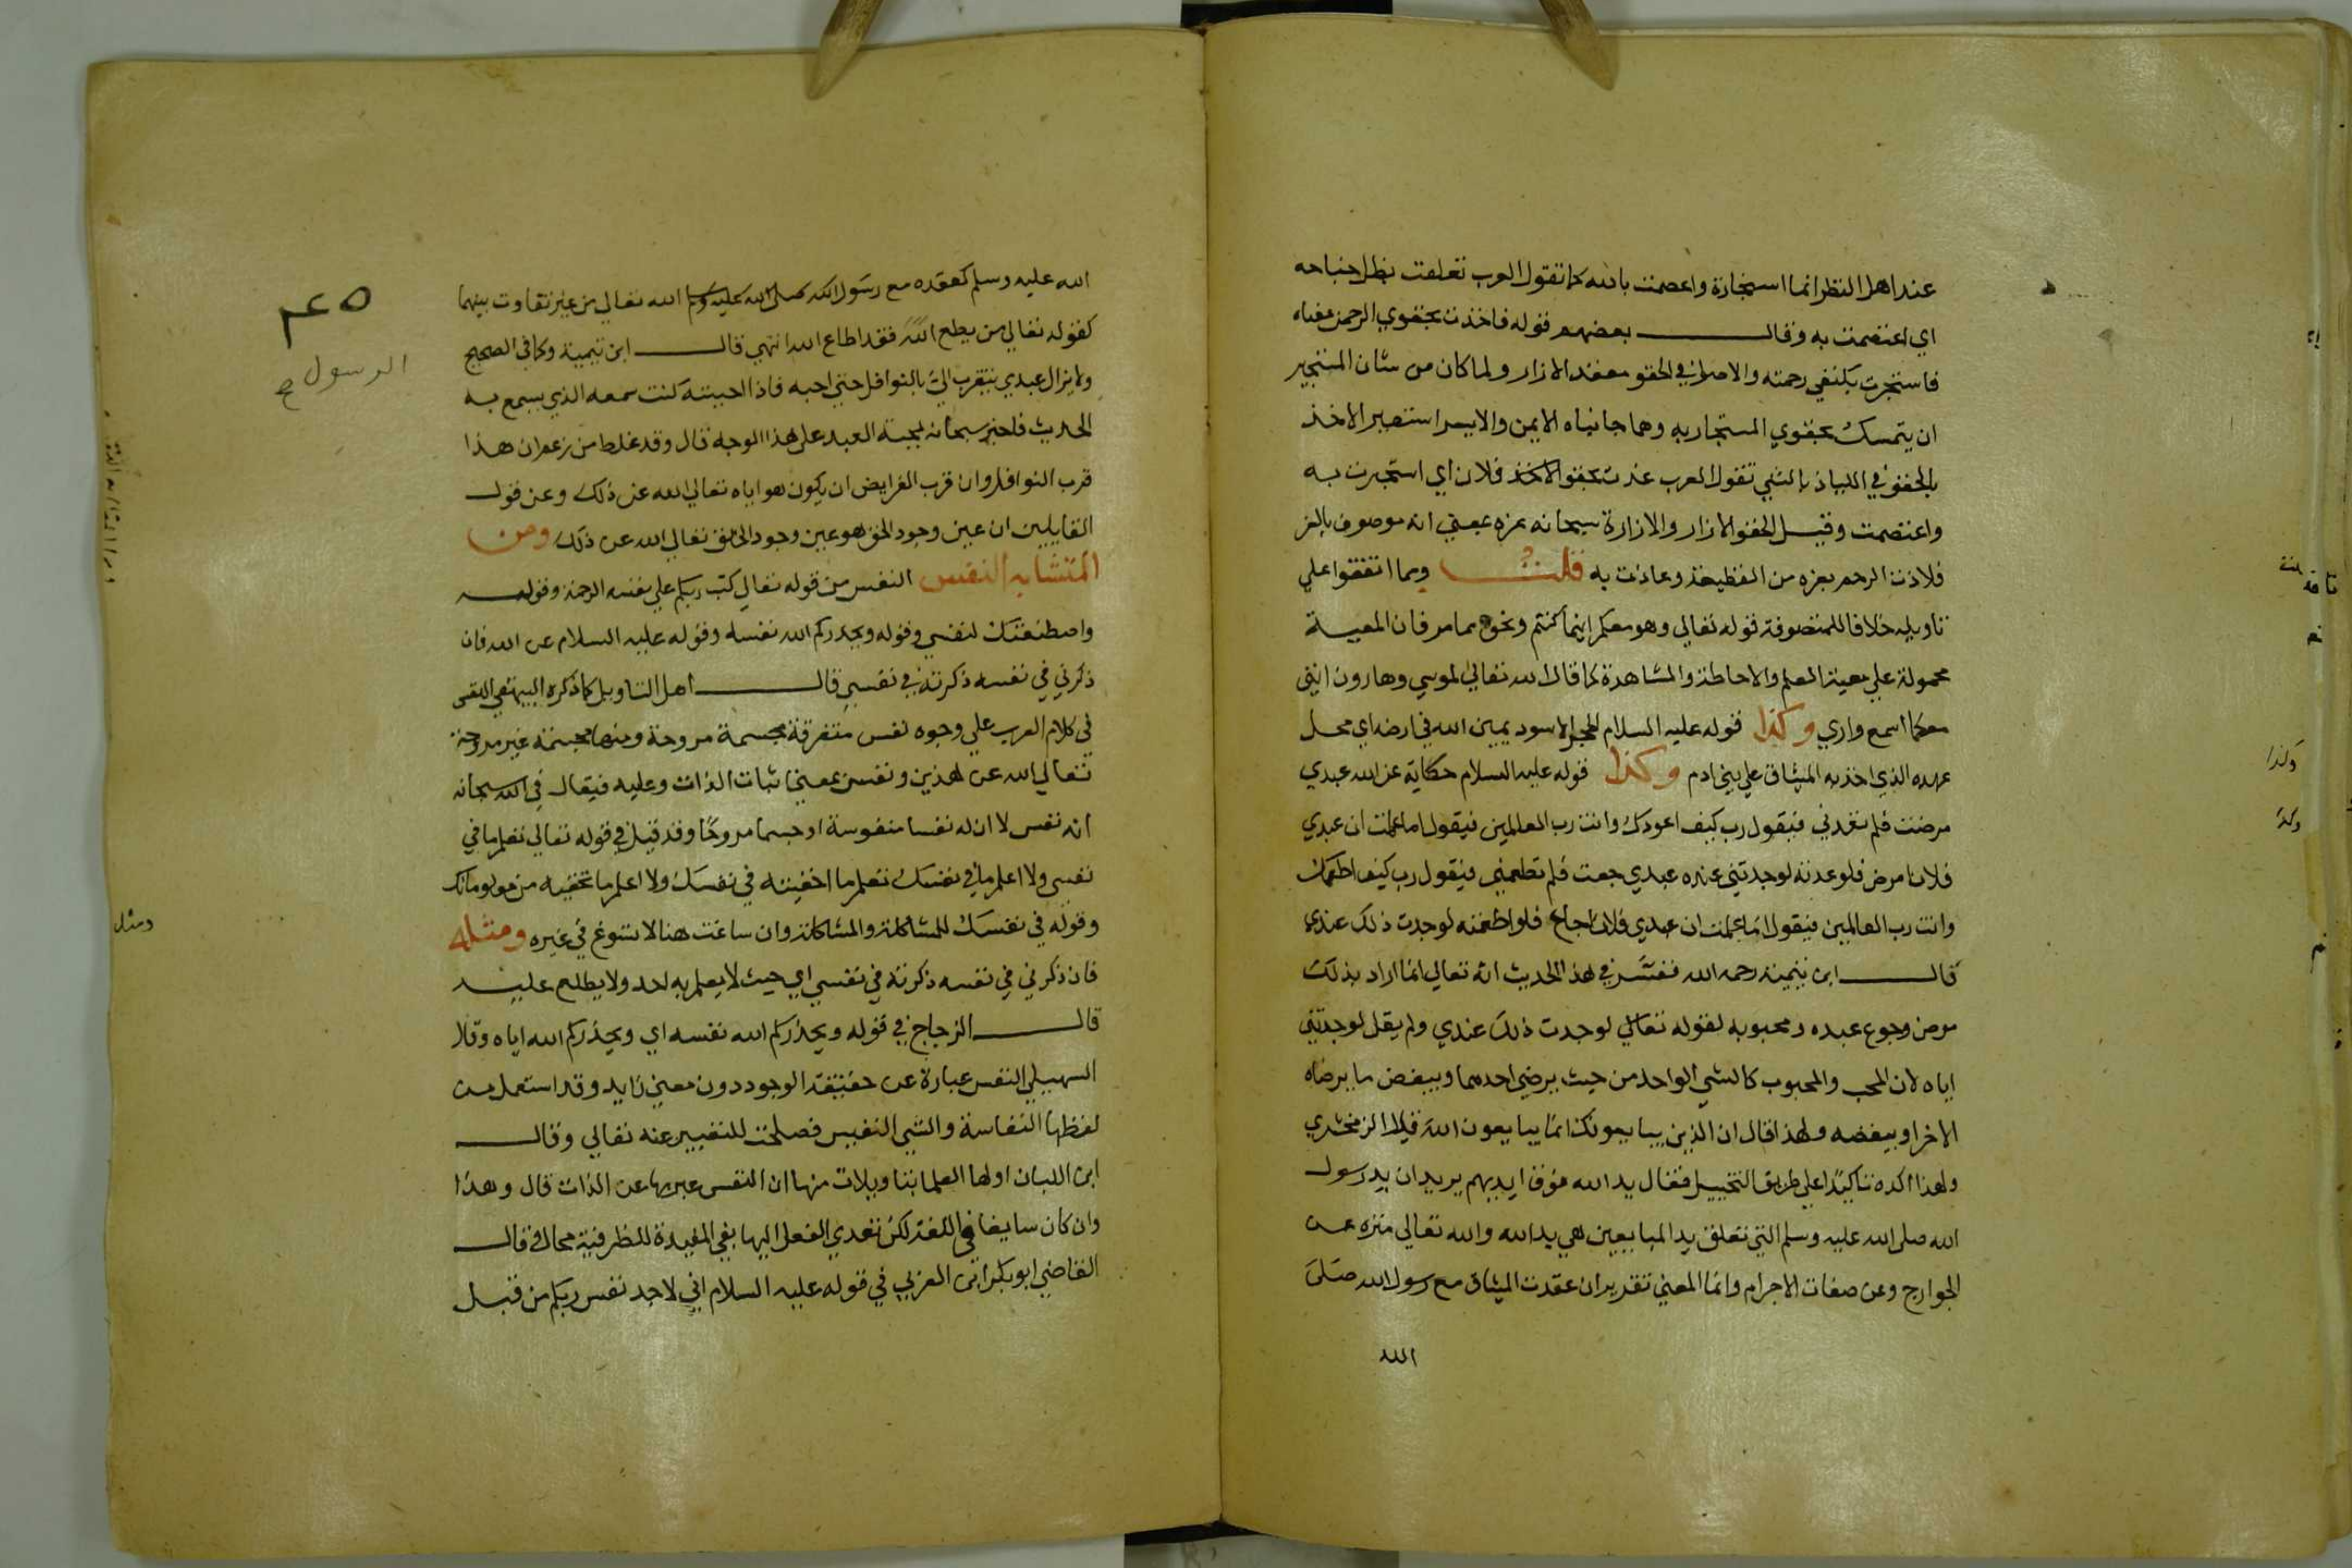 عند اهل النظر انما استجارة واعصمت بالله كما تقول العرب تعلقت بظل جناحه
اي اعتصمت به وقال بعضهم قوله فاخذت بحقوي الرحمن معناه
فاستجرت بكنفي رحمته والاصل في الحقو معقد الازار ولما كان من شان المستجير
ان يتمسك بحقوي المستجار به وهما جانباه الايمن والايسر استعير الاخذ
بالحقو في اللياذ بالشي تقول العرب عذت بحقو فلان اي استجرت به
واعتصمت وقيل الحقو الازار والازارة سبحانه عزه بمعني انه موصوف بالعز
فلاذت الرحم بعزه من القطيعة وعاذت به قلت ومما اتفقوا علي
تاويله خلافا للمتصوفة قوله تعالي وهو معكم اينما كنتم ونحوه مما مر فان المعية
محمولة علي معية العلم والاحاطة والمشاهدة كما قال الله تعالي لموسي وهارون انني
معكما اسمع واري وكذا قوله عليه السلام الحجر الاسود يمين الله في ارضه اي محل
عهده الذي اخذ به الميثاق علي بني ادم وكذا قوله عليه السلام حكاية عن الله عبدي
مرضت فلم تعدني فيقول رب كيف اعودك وانت رب العالمين فيقول اما علمت ان عبدي
فلانا مرض فلو عدته لوجدتني عنده عبدي جعت فلم تطعمني فيقول رب كيف اطعمك
وانت رب العالمين فيقول اما علمت ان عبدي فلانا جاع فلو اطعمته لوجدت ذلك عندي
قال ابن تيمية رحمه الله ففسر في هذا الحديث انه تعالي انما اراد بذلك
مرض وجوع عبده ومحبوبه لقوله تعالي لوجدت ذلك عندي ولم يقل لوجدتني
اياه لان المحب والمحبوب كالشي الواحد من حيث يرضي احدهما ويبغض ما يرضاه
الاخر او يبغضه ولهذا قال ان الذين يبايعونك انما يبايعون الله قال الزمخشري
ولهذا اكده تاكيدا علي طريق التخييل فقال يد الله فوق ايديهم يريد ان يد رسول
الله صلي الله عليه وسلم التي تعلق يد المبايعين هي يد الله والله تعالي منزه عن
الجوارح وعن صفات الاجرام وانما المعني تقدير ان عقدت الميثاق مع رسول الله صلي
الله
وكذا
وكذا
الله عليه وسلم كعقده مع رسول الله صلي الله عليه وسلم الله تعالي من غير تفاوت بينهما
كقوله تعالي من يطع الله فقد اطاع الله انتهي قال ابن تيمية وكما في الصحيح
ولا يزال عبدي يتقرب الي بالنوافل حتي احبه فاذا احببته كنت سمعه الذي يسمع به
الحديث فاخبر سبحانه لمحبة العبد علي هذا الوجه قال وقد غلط من زعم ان هذا
قرب النوافل وان قرب الفرايض ان يكون هو اياه تعالي الله عن ذلك وعن قول
القايلين ان عين وجود الحق هو عين وجود الخلق تعالي الله عن ذلك ومن
المتشابه النفس النفس من قوله تعالي كتب ربكم علي نفسه الرحمة وقوله
واصطنعتك لنفسي وقوله ويحذركم الله نفسه وقوله عليه السلام عن الله فان
ذكرني في نفسه ذكرته في نفسي قال اهل التاويل كما ذكره البيهقي النفس
في كلام العرب علي وجوه نفس متفرقة مجسمة مروحة ومنها مجسمة غير مروحة
تعالي الله عن هذين ونفس بمعني اثبات الذات وعليه فيقال في الله سبحانه
انه نفس لا ان له نفسا منفوسة او جسما مروحا وقد قيل في قوله تعالي تعلم ما في
نفسي ولا اعلم ما في نفسك تعلم ما اخفيته في نفسك ولا اعلم ما تخفيه من معلوماتك
وقوله في نفسك للمشاكلة والمشاكلة وان ساغت هنا لا تسوغ في غيره ومثله
فان ذكرني في نفسه ذكرته في نفسي اي حيث لا يعلم به احد ولا يطلع عليه
قال الزجاج في قوله ويحذركم الله نفسه اي ويحذركم الله اياه وقال
السهيلي النفس عبارة عن حقيقة الوجود دون معني زايد وقد استعمل من
لفظها النفاسة والشي النفيس فصلحت للتعبير عنه تعالي وقال
ابن اللبان اولها العلما بتاويلات منها ان النفس عبر بها عن الذات قال وهذا
وان كان سايغا في اللغة لكن تعدي الفعل اليها بفي المفيدة للظرفية محال وقال
القاضي ابو بكر ابن العربي في قوله عليه السلام اني لاجد نفس ربكم من قبل
٤٥
الرسول ح
ومثل